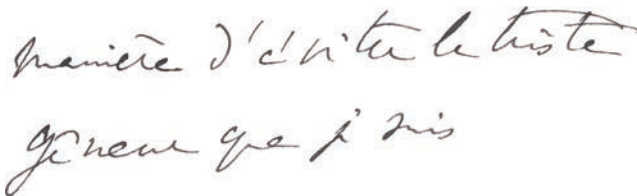 manière d'éviter le triste
gêneur que je suis